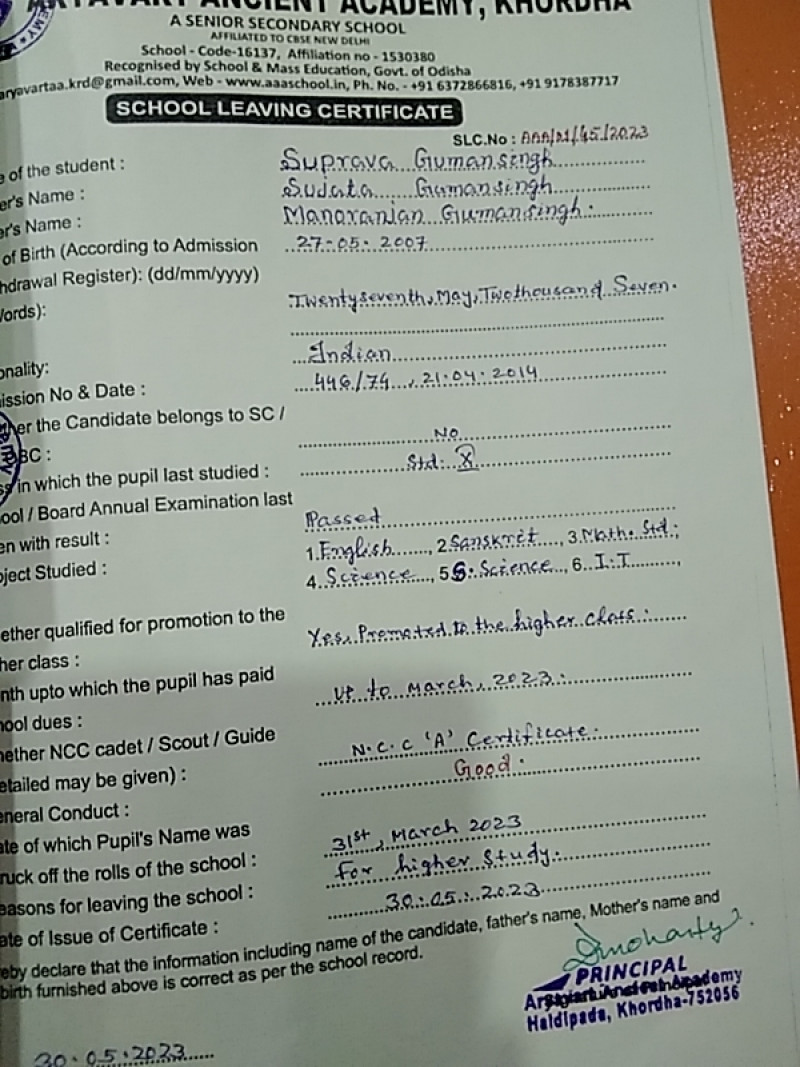 ANCIENT ACADEMY, KHORDHA
A SENIOR SECONDARY SCHOOL
AFFILIATED TO CBSE NEW DELHI
School - Code-16137, Affiliation no - 1530380
Recognised by School & Mass Education, Govt. of Odisha
aryavartaa.krd@gmail.com, Web - www.aaaschool.in, Ph. No. - +91 6372866816, +91 9178387717
SCHOOL LEAVING CERTIFICATE
SLC.No : AAA/21/45/2023
of the student : Suprava Gumansingh
er's Name : Sujata Gumansingh
er's Name : Manoranjan Gumansingh.
of Birth (According to Admission 27-05-2007
hdrawal Register): (dd/mm/yyyy)
ords): Twentyseventh, May, Twothousand Seven.
onality: Indian
ission No & Date : 446/74, 21.04.2014
her the Candidate belongs to SC /
BC : No
ss in which the pupil last studied : Std: X
ool / Board Annual Examination last
en with result : Passed
bject Studied : 1. English, 2. Sanskrit, 3. Math. Std;
4. Science, 5. S. Science, 6. I.T
ether qualified for promotion to the
her class : Yes, Promoted to the higher class.
nth upto which the pupil has paid
hool dues : Up to March, 2023.
hether NCC cadet / Scout / Guide
etailed may be given) : N.C.C 'A' Certificate.
eneral Conduct : Good.
ate of which Pupil's Name was
ruck off the rolls of the school : 31st, March 2023
easons for leaving the school : For higher Study.
ate of Issue of Certificate : 30.05.2023
eby declare that the information including name of the candidate, father's name, Mother's name and
birth furnished above is correct as per the school record.
PRINCIPAL
Academy
Haldipada, Khordha-752056
30.05.2023